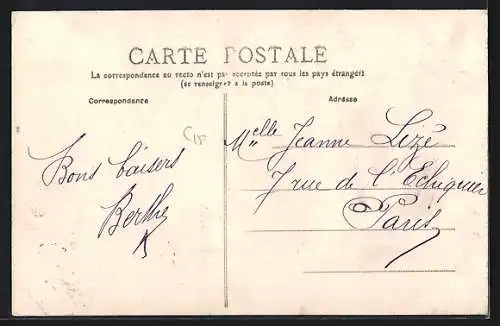 CARTE POSTALE
La correspondance au recto n'est pas acceptée par tous les pays étrangers
(se renseigner à la poste)
Correspondance
Adresse
Bons baisers
Berthe
Melle Jeanne Lizé
7 rue de l'Echiquier
Paris